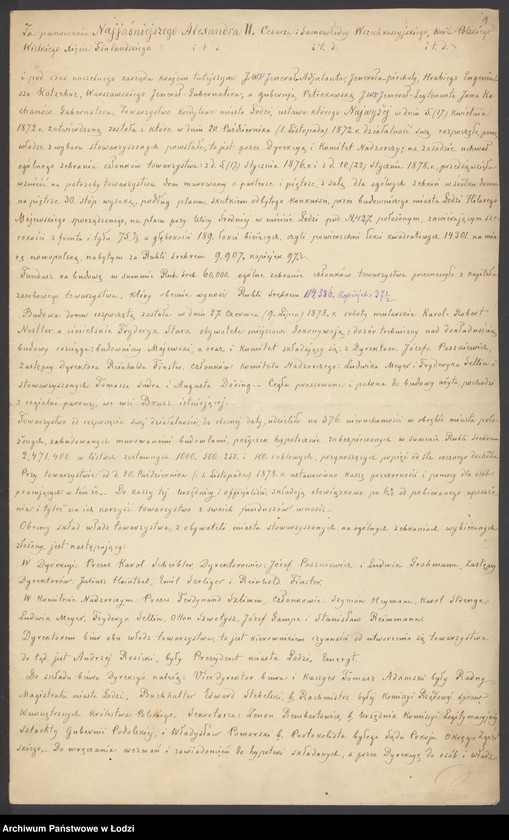 1
Za panowania Najjaśniejszego Alexandra II. Cesarza i Samowładcy Wszech rossyjskiego, Króla Polskiego
Wielkiego Xięcia Finlandzkiego i t. d. i. t. d. i. t. d.
i pod czas naczelnego zarządu krajem tutejszym JWW Jenerał-Adjutanta, Jenerał-piechoty, Hrabiego Eugeniu
sza Kotzebue, Warszawskiego Jenerał-Gubernatora, a gubernją Petrokowską JW Jenerał-Lejtnanta Jana Ka
chanow Gubernatora, Towarzystwo Kredytowe miasta Łodzi, ustawą którego Najwyżej w dniu 5 (17) Kwietnia
1872 r. zatwierdzoną została i które w dniu 20 Października (1 Listopada) 1872 r. działalność swą rozpoczęło, przez
władze z wyboru stowarzyszonych powstałe, to jest przez Dyrekcyą i Komitet Nadzorczy; na zasadzie uchwał
ogólnego zebrania członków towarzystwa z d. 5 (17) Stycznia 1876 r. i z d. 10 (22) Stycznia 1878 r., przedsięwzięło
wznieść na potrzeby towarzystwa dom murowany o parterze i piętrze, z salą dla ogólnych zebrań w środku domu
na piętrze 30 stóp wysoką, podług planu, skutkiem odbytego konkursu, przez budowniczego miasta Łodzi Hilarego
Majewskiego sporządzonego, na placu przy Ulicy Średniej w mieście Łodzi pod N. 427. położonym, zawierającym sze
rokości z frontu i tyłu 75 2/3 a głębokości 189 łokci bieżących, czyli powierzchni łokci kwadratowych 14301 na mia
rę nowopolską, nabytym za Rubli srebrem 9,907. kopiejek 97 1/2
Fundusz na budowę w summie Rub. sreb. 60,000. ogólne zebranie członków towarzystwa przeznaczyło z kapitału
zasobowego towarzystwa, który obecnie wynosi Rubli srebrem 114,586. Kopiejek 37 1/2
Budowa domu rozpoczętą została w dniu 27 Czerwca (9 Lipca) 1878 r. roboty mularskie Karol-Robert
Nestler a ciesielskie Fryderyk Stark obywatele miejscowi dokonywają; dozór techniczny nad dokładnością
budowy rozciąga: budowniczy Majewski, a oraz i komitet składający się: z Dyrektora Józefa Paszkiewicza,
zastępcy Dyrektora Reinholda Finster, członków Komitetu Nadzorczego: Ludwika Meyer i Fryderyka Sellin i
stowarzyszonych Tomasza Sudra i Augusta Döring.- Cegła prasowana i palona do budowy użyta, pochodzi
z cegielni parowej, we wsi Brus istniejącej.-
Towarzystwo od rozpoczęcia swej działalności, do obecnej daty, udzieliło na 376. nieruchomości w obrębie miasta poło
żonych, zabudowanych murowanemi budowlami, pożyczek hypotecznie zabezpieczonych w summie Rubli srebrem
2,471,400. w listach zastawnych 1000, 500. 250. i 100. rublowych, przynoszących po pięć od sta rocznego dochodu.
Przy towarzystwie od d. 20. Października (1. Listopada) 1878. r. ustanowiono kassę przezorności i pomocy dla osób
pracujących w temże.- Do kassy tej urzędnicy i officjaliści, składają obowiązkowo po 6% od pobieranego uposaże
nia i tyleż na ich korzyść towarzystwo z swoich funduszów wnosi.-
Obecny skład władz towarzystwa, z obywateli miasta stowarzyszonych na ogólnych zebraniach wybieranych
złożony, jest następujący:
W Dyrekcji: Prezes Karol Scheibler, Dyrektorowie: Józef Paszkiewicz i Ludwik Grohmann, Zastępcy
Dyrektorów: Juliusz Heintzel, Emil Seeliger i Reinhold Finster.
W Komitecie Nadzorczym: Prezes Ferdynand Szlimm, Członkowie: Szymon Heymann, Karol Strenge,
Ludwik Meyer, Fryderyk Sellin, Otton Szwetysz, Józef Gampe i Stanisław Reimmann.
Dyrektorem biur obu władz towarzystwa, to jest kierownikiem czynności od utworzenia się towarzystwa
do tąd, jest Andrzej Rosicki, były Prezydent miasta Łodzi, Emeryt.
Do składu biura Dyrekcyi należą: Vice dyrektor biura i Kassyer Tomasz Adamski były Radny
Magistratu miasta Łodzi, Buchhalter Edward Stebelski b. Rachmistrz byłej Komissyi Rządowej spraw
Wewnętrznych Królestwa Polskiego, Sekretarze: Zenon Rembertowicz b. urzędnik Komissyi Legitymacyjnej
Szlachty Gubernii Podolskiej, i Władysław Pomorski b. Protokolista byłego Sądu Pokoju Okręgu Zgier
skiego.- Do wręczania wezwań i zawiadomień do hypoteki składanych, a przez Dyrekcyę do osób i władz
Archiwum Państwowe w Łodzi